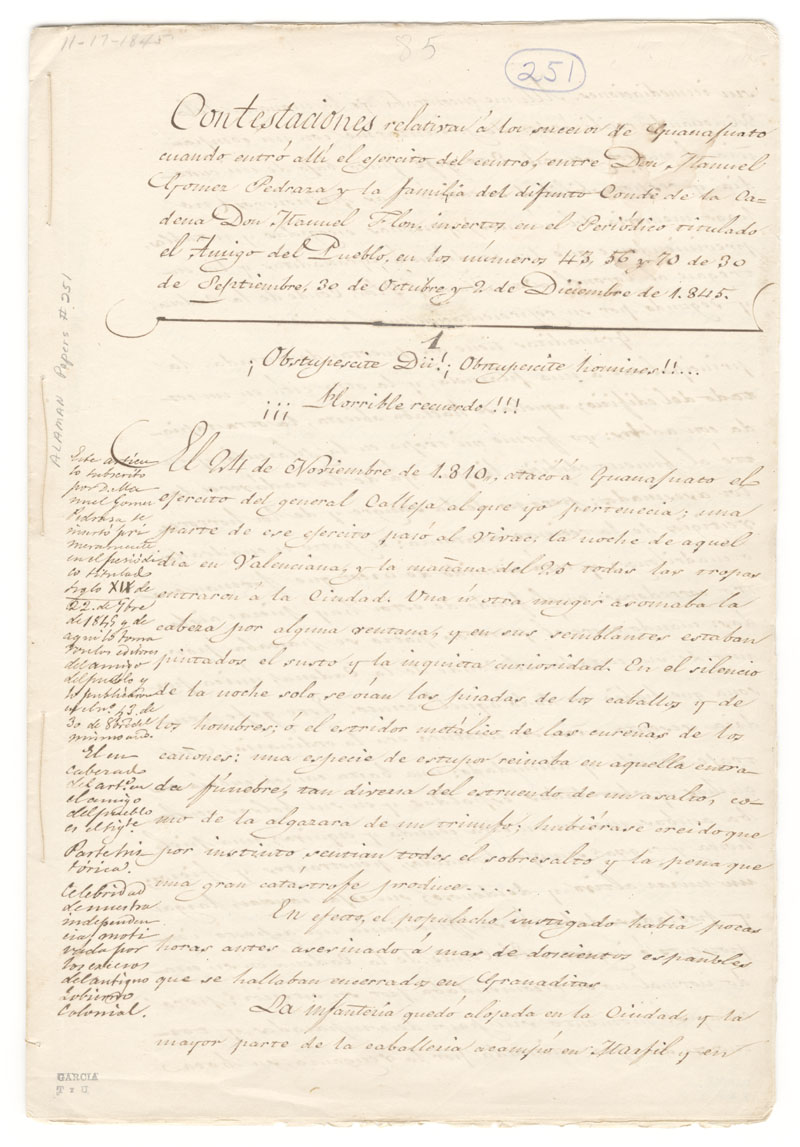 11-17-1845
85
251
Contestaciones relativas á los sucesos de Guanajuato
cuando entró allí el ejercito del centro, entre Don Manuel
Gomez Pedraza y la familia del difunto Conde de la Ca-
dena Don Manuel Flon, insertos en el Periódico titulado
el Amigo del Pueblo, en los números 43, 56 y 70 de 30
de Septiembre, 30 de Octubre y 2 de Diciembre de 1.845.
1
¡Obstupescite Dii! ¡Obstupescite homines!!...
¡¡¡Horrible recuerdo!!!
El 24 de Noviembre de 1.810, atacó á Guanajuato el
ejercito del general Calleja al que yo pertenecia; una
parte de ese ejercito pasó al Vivac, la noche de aquel
dia en Valenciana, y la mañana del 25 todas las tropas
entraron á la Ciudad. Una ú otra muger asomaba la
cabeza por alguna ventana, y en sus semblantes estaban
pintados el susto y la inquieta curiosidad. En el silencio
de la noche solo se oían las pisadas de los caballos y de
los hombres; ó el estridor metálico de las cureñas de los
cañones: una especie de estupor reinaba en aquella entra-
da fúnebre, tan diversa del estruendo de un asalto, co-
mo de la algazara de un triunfo; hubiérase creido que
por instinto sentian todos el sobresalto y la pena que
una gran catástrofe produce....
En efecto, el populacho instigado habia pocas
horas antes asesinado á mas de doscientos españoles
que se hallaban encerrados en Granaditas.
La infantería quedó alojada en la Ciudad, y la
mayor parte de la caballeria acampó en Marfil y en
Este articu
lo subscrito
por D. Ma
nuel Gomez
Pedraza se
insertó pri
meramente
en el periódi
co titulado
Siglo XIX de
22. de 7bre
de 1845 y de
aqui lo toma
ron los editores
del amigo
del pueblo y
lo publicaron
en el nº. 43. de
30 de 8bre del
mismo año.
El en
cabezado
del artº. en
el amigo
del pueblo
es el sigte.
Parte his
tórica.
Celebridad
de nuestra
independen
cia, moti
vada por
los excesos
del antiguo
Gobierno
Colonial.
ALAMAN Papers #.251
GARCIA